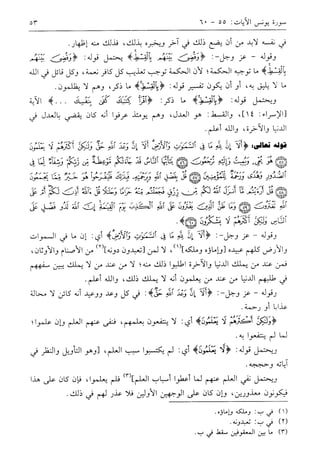 سورة يونس الآيات: ٥٥ - ٦٠ ٥٣
في نفسه لابد من أن يضع ذلك في آخر ويخبره بذلك، فذلك منه إظهار.
وقوله - عز وجل -: ﴿وَقُضِيَ بَيْنَهُم بِالْقِسْطِ﴾ يحتمل قوله: ﴿وَقُضِيَ بَيْنَهُم
بِالْقِسْطِ﴾ ما توجبه الحكمة؛ لأن الحكمة توجب تعذيب كل كافر نعمة، وكل قائل في الله
ما لا يليق به، أو أن يكون تفسير قوله: ﴿بِالْقِسْطِ﴾ ما ذكر، وهم لا يظلمون.
ويحتمل قوله: ﴿بِالْقِسْطِ﴾ ما ذكر: ﴿اقْرَأْ كِتَابَكَ كَفَىٰ بِنَفْسِكَ . . .﴾ الآية
[الإسراء: ١٤]، والقسط: هو العدل، وهم يومئذ عرفوا أنه كان يقضي بالعدل في
الدنيا والآخرة، والله أعلم.
قوله تعالى: ﴿أَلَا إِنَّ لِلَّهِ مَا فِي السَّمَاوَاتِ وَالْأَرْضِ أَلَا إِنَّ وَعْدَ اللَّهِ حَقٌّ وَلَٰكِنَّ أَكْثَرَهُمْ لَا يَعْلَمُونَ
﴿٥٥﴾ هُوَ يُحْيِي وَيُمِيتُ وَإِلَيْهِ تُرْجَعُونَ ﴿٥٦﴾ يَا أَيُّهَا النَّاسُ قَدْ جَاءَتْكُم مَّوْعِظَةٌ مِّن رَّبِّكُمْ وَشِفَاءٌ لِّمَا فِي
الصُّدُورِ وَهُدًى وَرَحْمَةٌ لِّلْمُؤْمِنِينَ ﴿٥٧﴾ قُلْ بِفَضْلِ اللَّهِ وَبِرَحْمَتِهِ فَبِذَٰلِكَ فَلْيَفْرَحُوا هُوَ خَيْرٌ مِّمَّا يَجْمَعُونَ
﴿٥٨﴾ قُلْ أَرَأَيْتُم مَّا أَنزَلَ اللَّهُ لَكُم مِّن رِّزْقٍ فَجَعَلْتُم مِّنْهُ حَرَامًا وَحَلَالًا قُلْ آللَّهُ أَذِنَ لَكُمْ أَمْ عَلَى
اللَّهِ تَفْتَرُونَ ﴿٥٩﴾ وَمَا ظَنُّ الَّذِينَ يَفْتَرُونَ عَلَى اللَّهِ الْكَذِبَ يَوْمَ الْقِيَامَةِ إِنَّ اللَّهَ لَذُو فَضْلٍ عَلَى
النَّاسِ وَلَٰكِنَّ أَكْثَرَهُمْ لَا يَشْكُرُونَ ﴿٦٠﴾﴾.
وقوله - عز وجل -: ﴿أَلَا إِنَّ لِلَّهِ مَا فِي السَّمَاوَاتِ وَالْأَرْضِ﴾ أي: إن ما في السموات
والأرض كلهم عبيده [وإماؤه وملكه](١)، لا لمن [تعبدون دونه](٢) من الأصنام والأوثان،
فمن عند من يملك الدنيا والآخرة اطلبوا ذلك منه؛ لا من عند من لا يملك يبين سفههم
في طلبهم الدنيا من عند من يعلمون أنه لا يملك ذلك، والله أعلم.
وقوله - عز وجل -: ﴿أَلَا إِنَّ وَعْدَ اللَّهِ حَقٌّ﴾: في كل وعد ووعيد أنه كائن لا محالة
عذابا أو رحمة.
﴿وَلَٰكِنَّ أَكْثَرَهُمْ لَا يَعْلَمُونَ﴾ أي: لا ينتفعون بعلمهم، فنفى عنهم العلم وإن علموا؛
لما لم ينتفعوا به.
ويحتمل قوله: ﴿لَا يَعْلَمُونَ﴾ أي: لم يكتسبوا سبب العلم، [وهو التأويل والنظر في
آياته وحججه.
ويحتمل نفي العلم عنهم لما أعطوا أسباب العلم](٣) فلم يعلموا، فإن كان على هذا
فيكونون معذورين، وإن كان على الوجهين الأولين فلا عذر لهم في ذلك.
(١) في ب: وملكه وإماؤه.
(٢) في ب: تعبدونه.
(٣) ما بين المعقوفين سقط في ب.